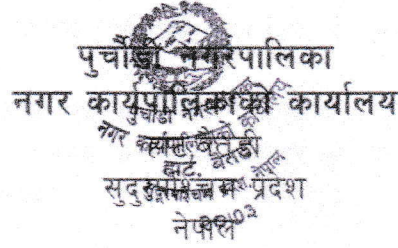 पुर्चौडी नगरपालिका
नगर कार्यपालिकाको कार्यालय
बैतडी
सुदुरपश्चिम प्रदेश
नेपाल